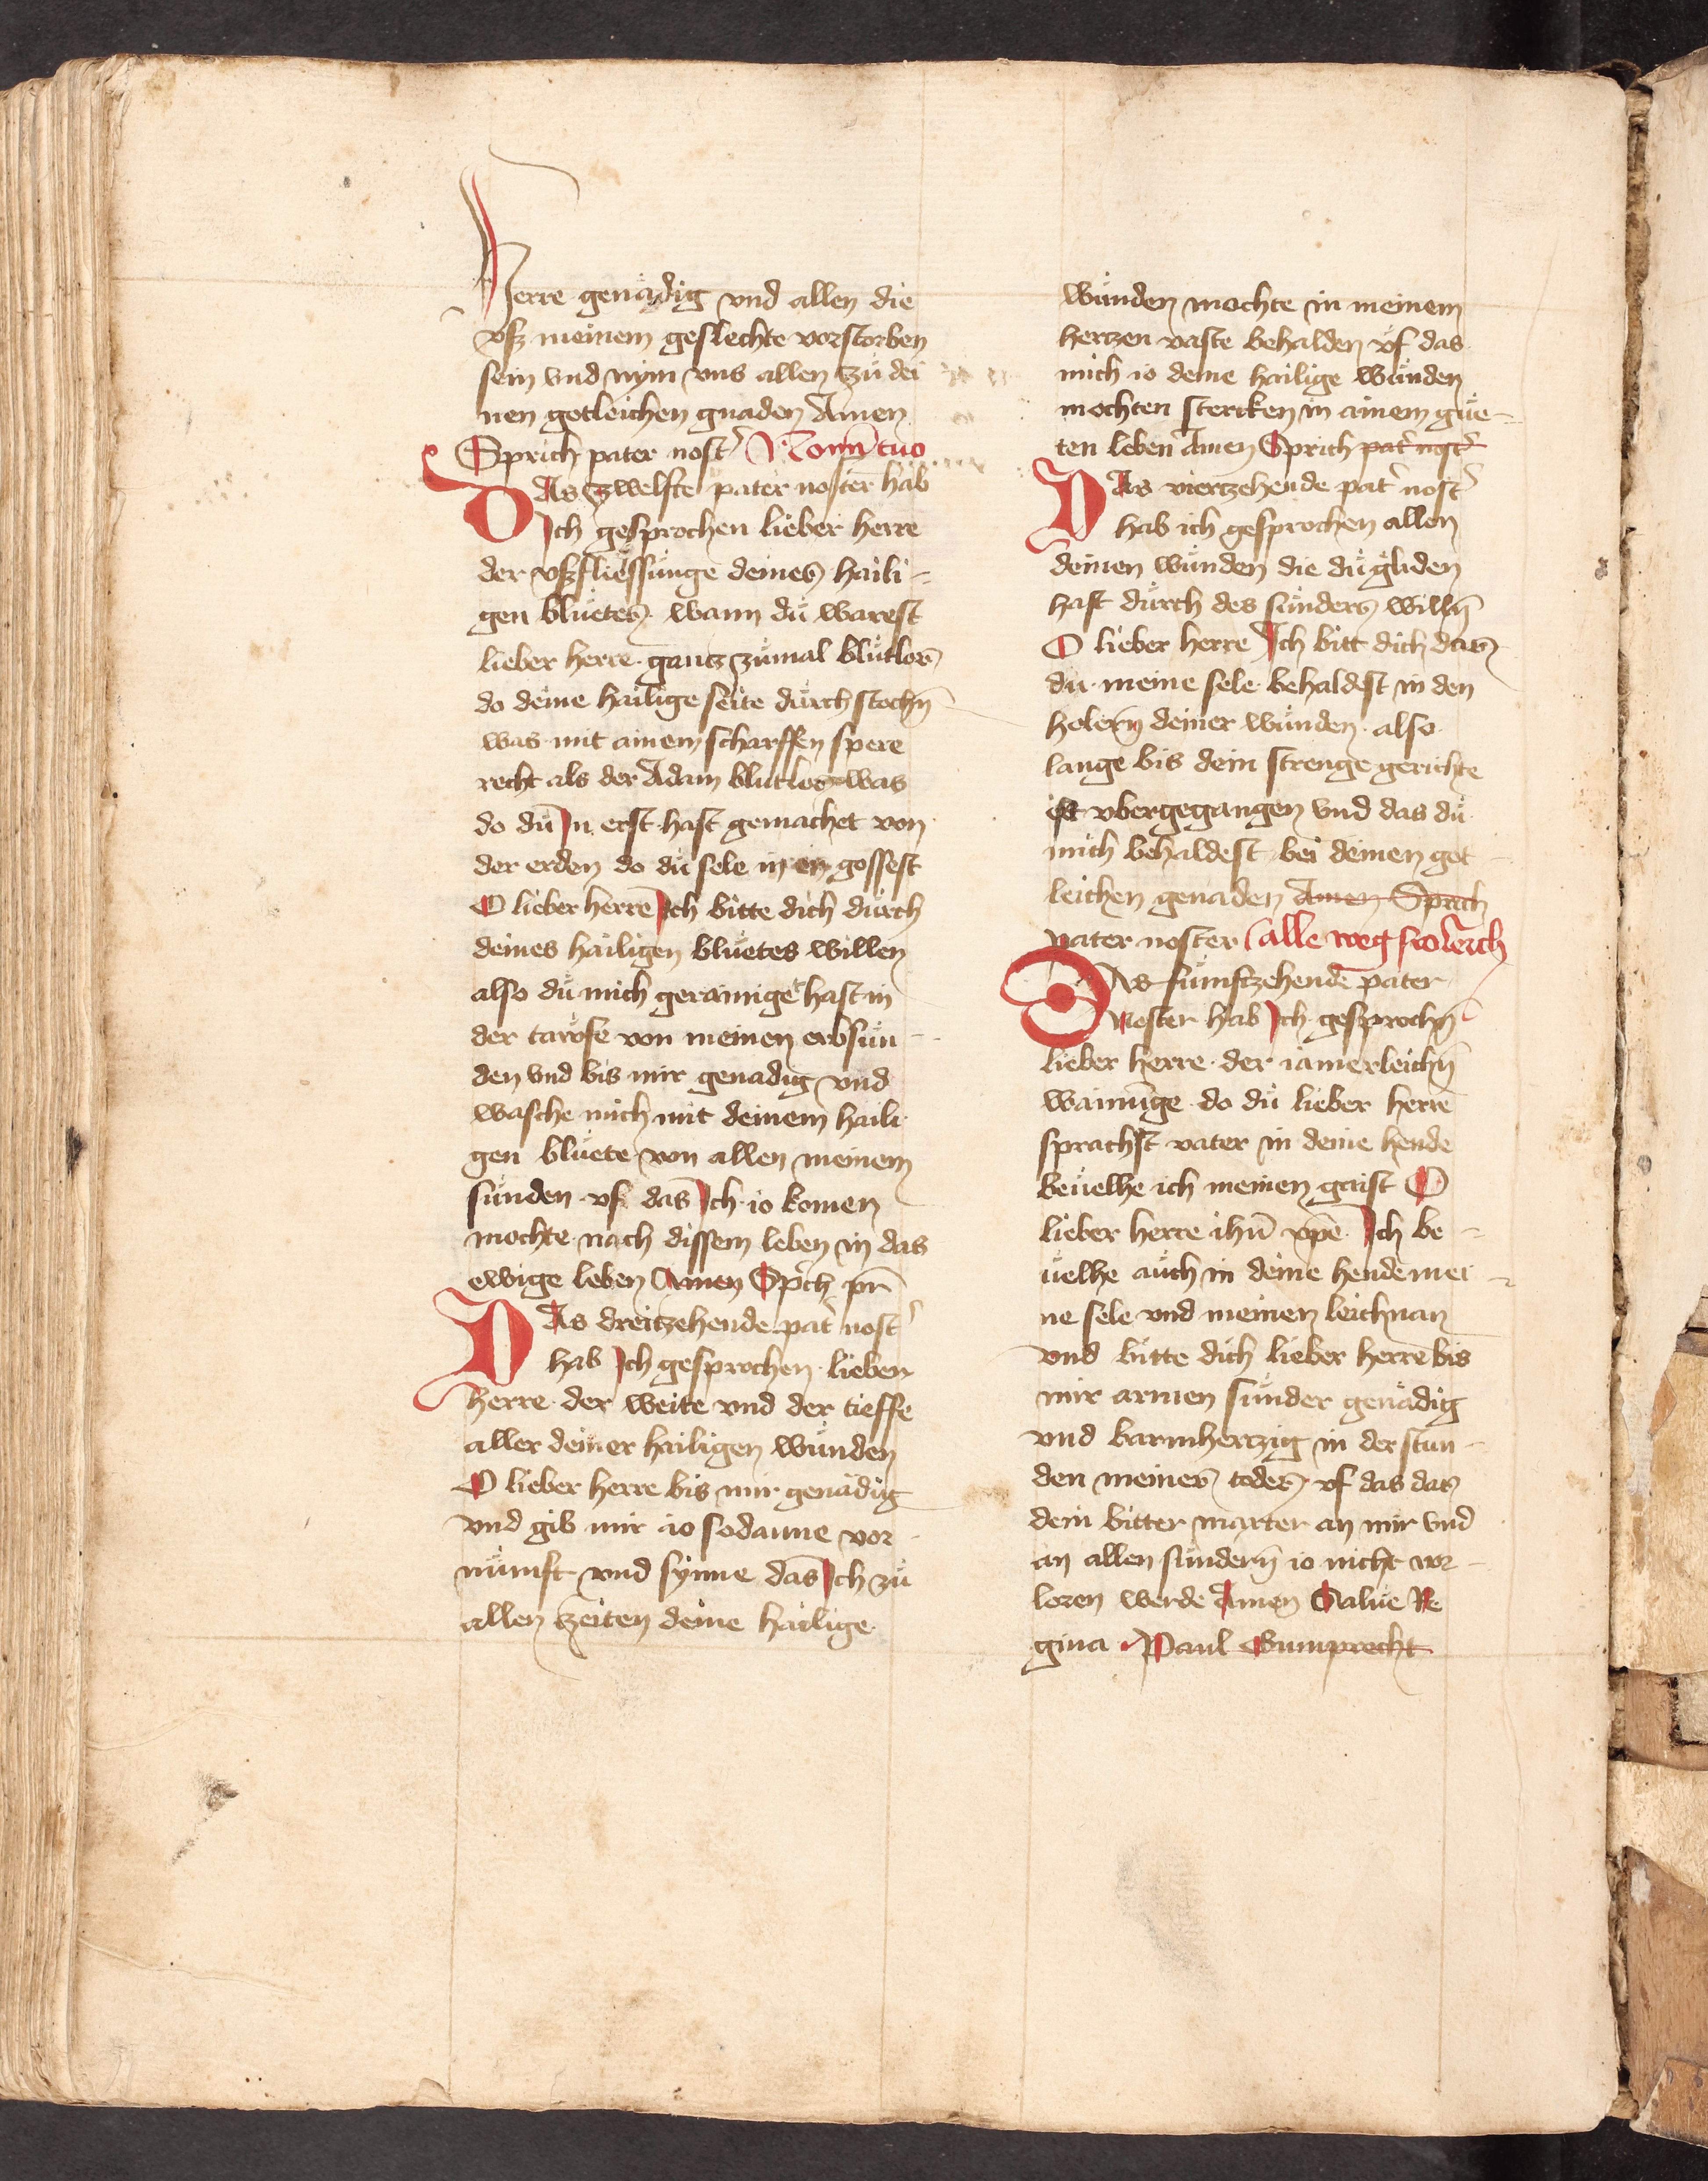 Herre genädig vnd allen die
vsz meinem geslechte vorstorben
sein vnd nym vns allen zü dei
nen gotleichen gnaden Amen
Sprich pater nost̛
DAs zwelfte pater noster hab
Jch gesprochen lieber herre
der vszfliessünge deines haili-
gen blüetes. wann dü warest
lieber herre. gantz zümal blütlos
do deine hailige seite dürch stochn̄
was mit ainem scharffen spere
recht als der Adam blutlos was
do dü Jn erst hast gemachet von
der erden do dü sele in en gossest
O lieber herre Jch bitte dich dürch
deines hailigen blüetes willen
also dü mich gerainiget hast in
der tawfe von meinen erbsün-
den vnd bis mir genadig vnd
wasche mich mit deinem haili
gen blüete von allen meinem
sünden. vf das Jch io komen
mochte nach dissem leben in das
ewige leben Amen Sp̛ch pn̄r
DAs dreitzehende pat̛ nost̛
hab Jch gesprochen. lieben
herre. der weite vnd der tieffe
aller deiner hailigen wünden
O lieber herre bis mir genädig
vnd gib mir io sodanne vor-
nünft vnd synne das Jch zü
allen zeiten deine hailige
wünden mochte in meinem
hertzen vaste behalden vf das
mich io deine hailige wünden
mochten stercken in ainem güe-
ten leben Amen Sprich pat̛ nost̛
DAs viertzehende pat̛ nost̛
hab ich gesprochen allen
deinen wünden die dü geliden
hast dürch des sünders willn̄
O lieber herre Jch bitt dich das
dü meine sele. behaldest in den
holern deiner wünden. also
lange bis dein strenge gerichte
ist vbergegangen vnd das dü
mich behaldest bei deinen got
leichen genaden Amen Sprich
pater noster alle weg
DAs fünftzehende pater
noster hab Jch gesprochn̄
lieber herre. der iamerleichn̄
wainūge do dü lieber herre
sprachst vater in deine hende
bevelhe ich meinen gaist O
lieber herre ihū xp̄e Jch be-
uelhe aüch in deine hende mei-
ne sele vnd meinen leichnan
vnd bitte dich lieber herre bis
mir armen sünder genädig
vnd barmhertzig in der stun-
den meines todes. vf das das
dein bitter marter an mir vnd
an allen sündern io nicht vor-
loren werde Amen Salue Re
gina. Paul Gumprecht